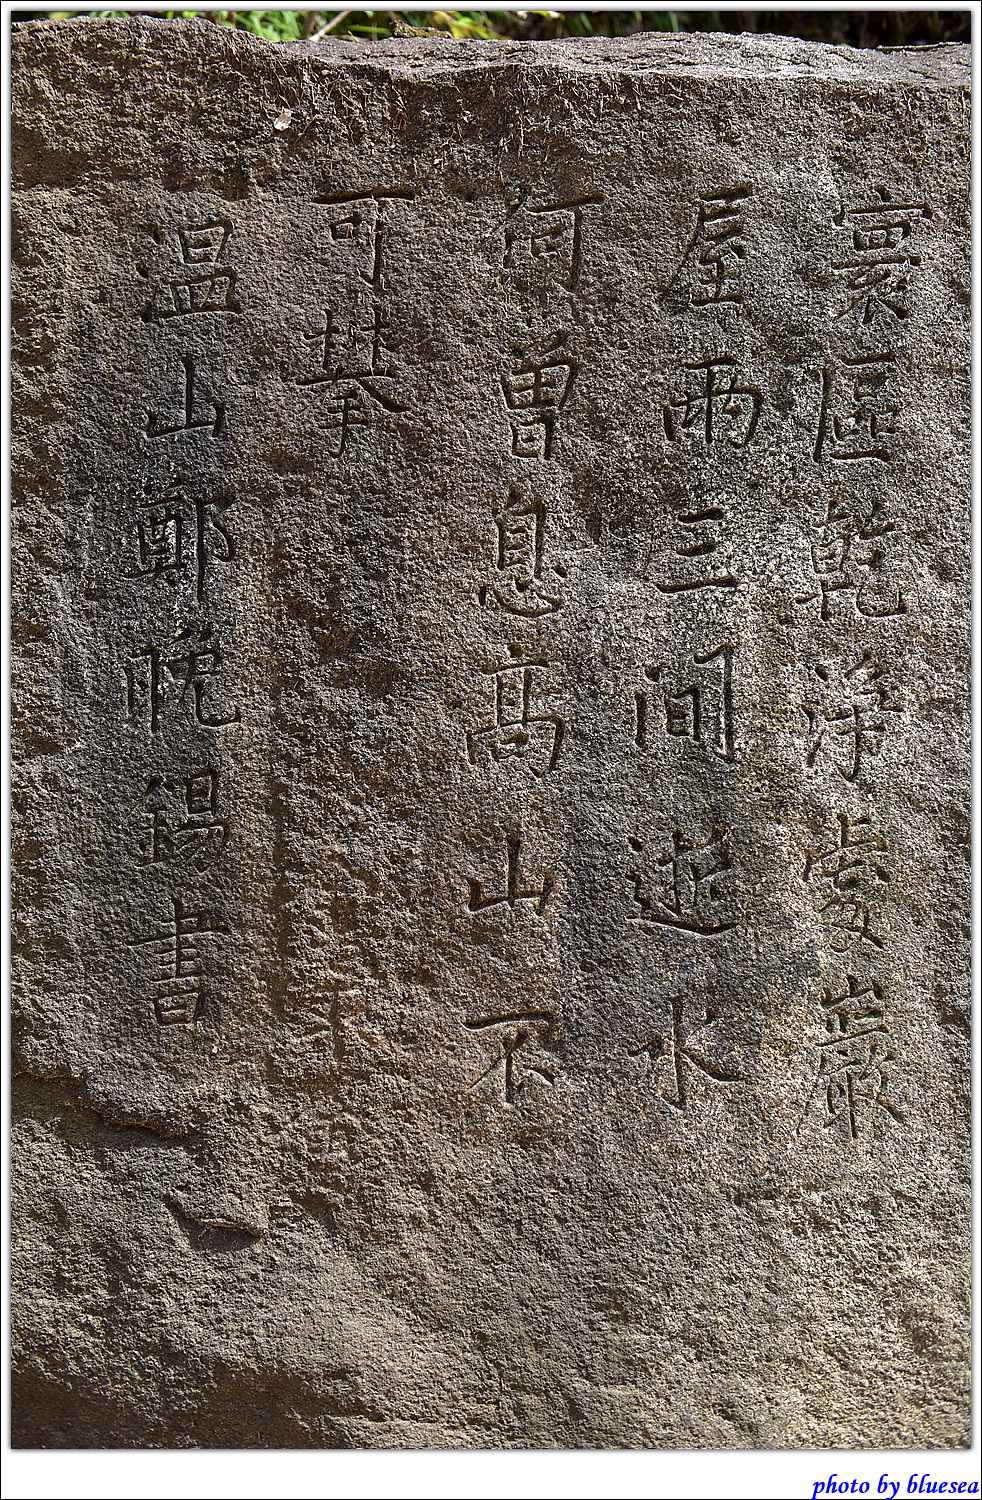 寰區乾淨處巖
屋兩三間逝水
何曾息高山不
可攀
温山鄭晩錫書
photo by bluesea